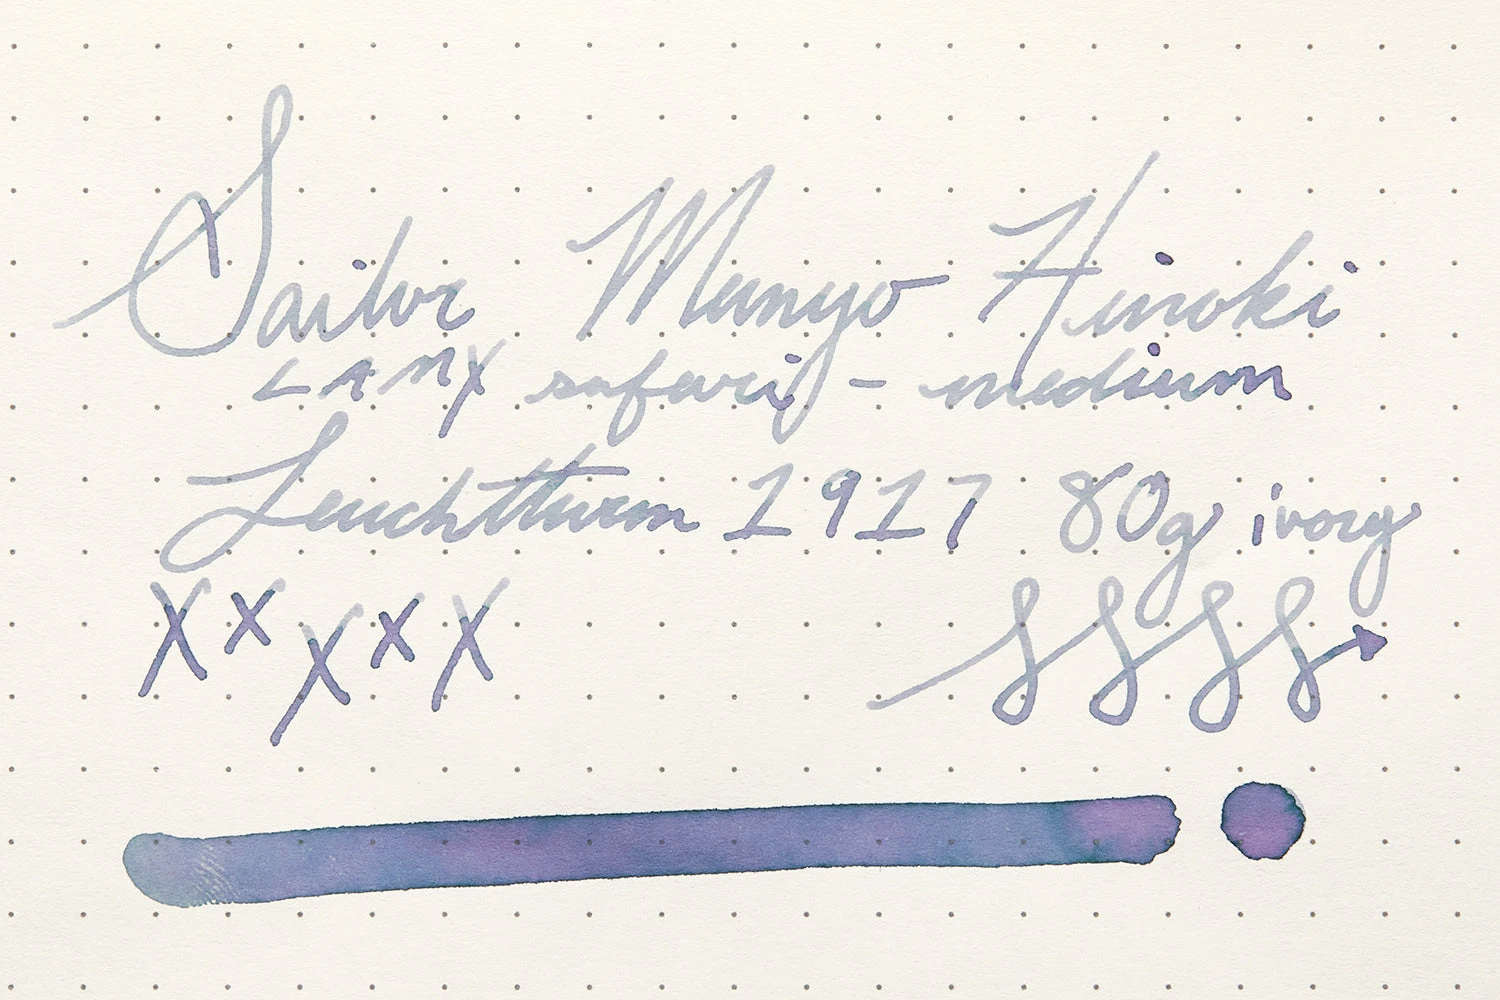 Sailor Manyo Hinoki
LAMY safari - medium
Leuchtturm 1917 80g ivory
x x x x x